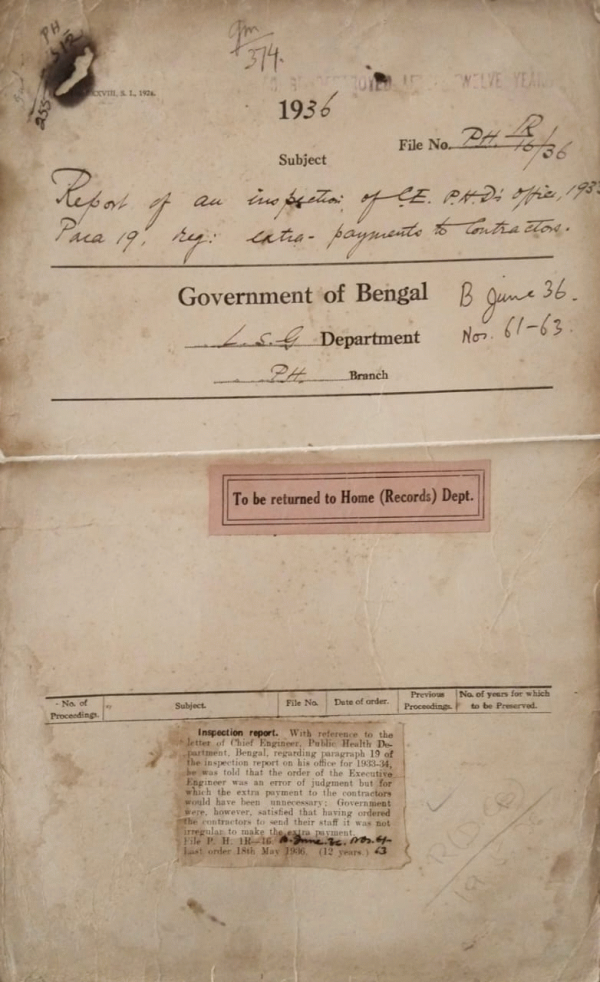 Gm
374.
PH
255
XXVIII, S. I., 1926.
DESTROYED TWELVE YEARS
1936
File No. P.H. IR/16/36
Subject
Report of an inspection of C.E. P.H.D's Office, 193
Para 19, reg: extra-payments to Contractors.
Government of Bengal
B June 36.
L.S.G Department
Nos. 61-63.
P.H. Branch
To be returned to Home (Records) Dept.
No. of Proceedings.
Subject.
File No.
Date of order.
Previous Proceedings.
No. of years for which to be Preserved.
Inspection report. With reference to the
letter of Chief Engineer, Public Health De-
partment, Bengal, regarding paragraph 19 of
the inspection report on his office for 1933-34,
he was told that the order of the Executive
Engineer was an error of judgment but for
which the extra payment to the contractors
would have been unnecessary; Government
were, however, satisfied that having ordered
the contractors to send their staff it was not
irregular to make the extra payment.
File P. H. 1R-16 B. June. 36. Nos. 61-
Last order 18th May 1936. (12 years.) 63